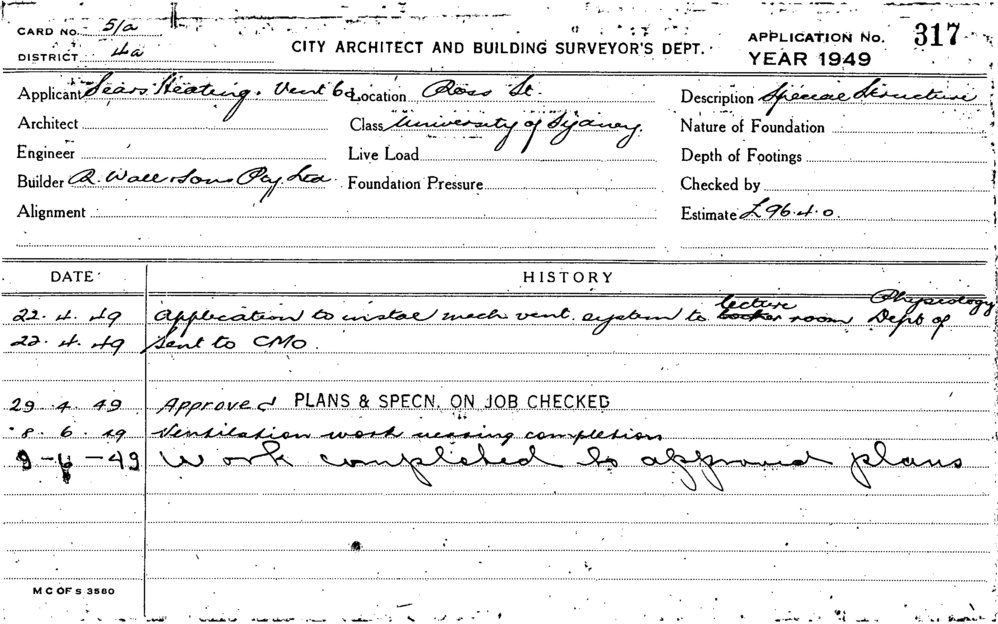 CARD No. 5/a
DISTRICT 4a
CITY ARCHITECT AND BUILDING SURVEYOR'S DEPT.
APPLICATION No. 317
YEAR 1949
Applicant Sears Heating. Vent Co Location Ross St. Description Special Structure
Architect Class University of Sydney. Nature of Foundation
Engineer Live Load Depth of Footings
Builder R. Wall & Sons Pty. Ltd. Foundation Pressure Checked by
Alignment Estimate £96.4.0.
DATE HISTORY
22.4.49 Application to instal mech vent. system to lecture room Dept of Physiology
22.4.49 Sent to CMO.
29.4.49 Approved PLANS & SPECN. ON JOB CHECKED
8.6.49 Ventilation work nearing completion
9-6-49 Work completed to approved plans
M C OF S 3580